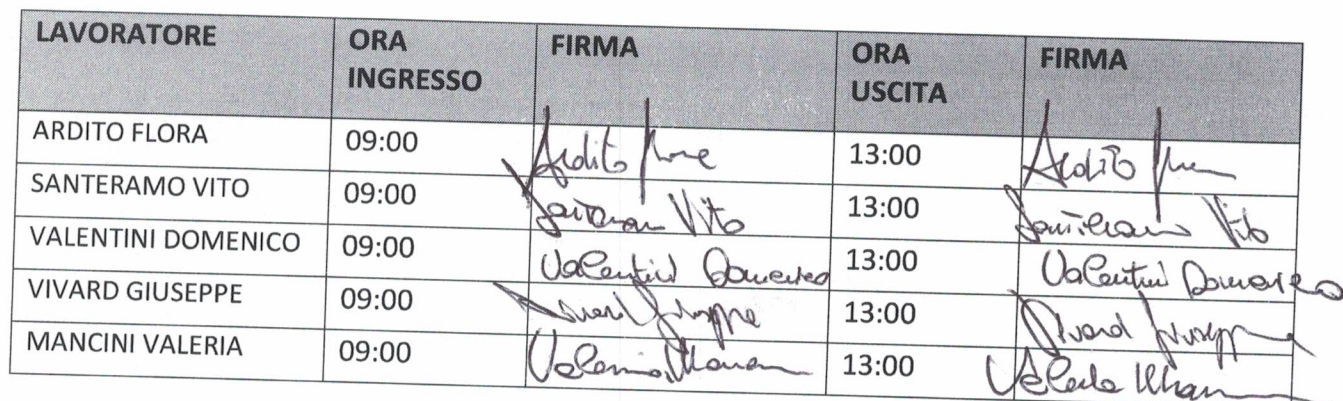 LAVORATORE ORA INGRESSO FIRMA ORA USCITA FIRMA
ARDITO FLORA 09:00 Ardito 13:00 Ardito
SANTERAMO VITO 09:00 Vito 13:00 Vito
VALENTINI DOMENICO 09:00 Valentini Domenico 13:00 Valentini Domenico
VIVARD GIUSEPPE 09:00 Vivard Giuseppe 13:00 Vivard Giuseppe
MANCINI VALERIA 09:00 Valeria 13:00 Valeria